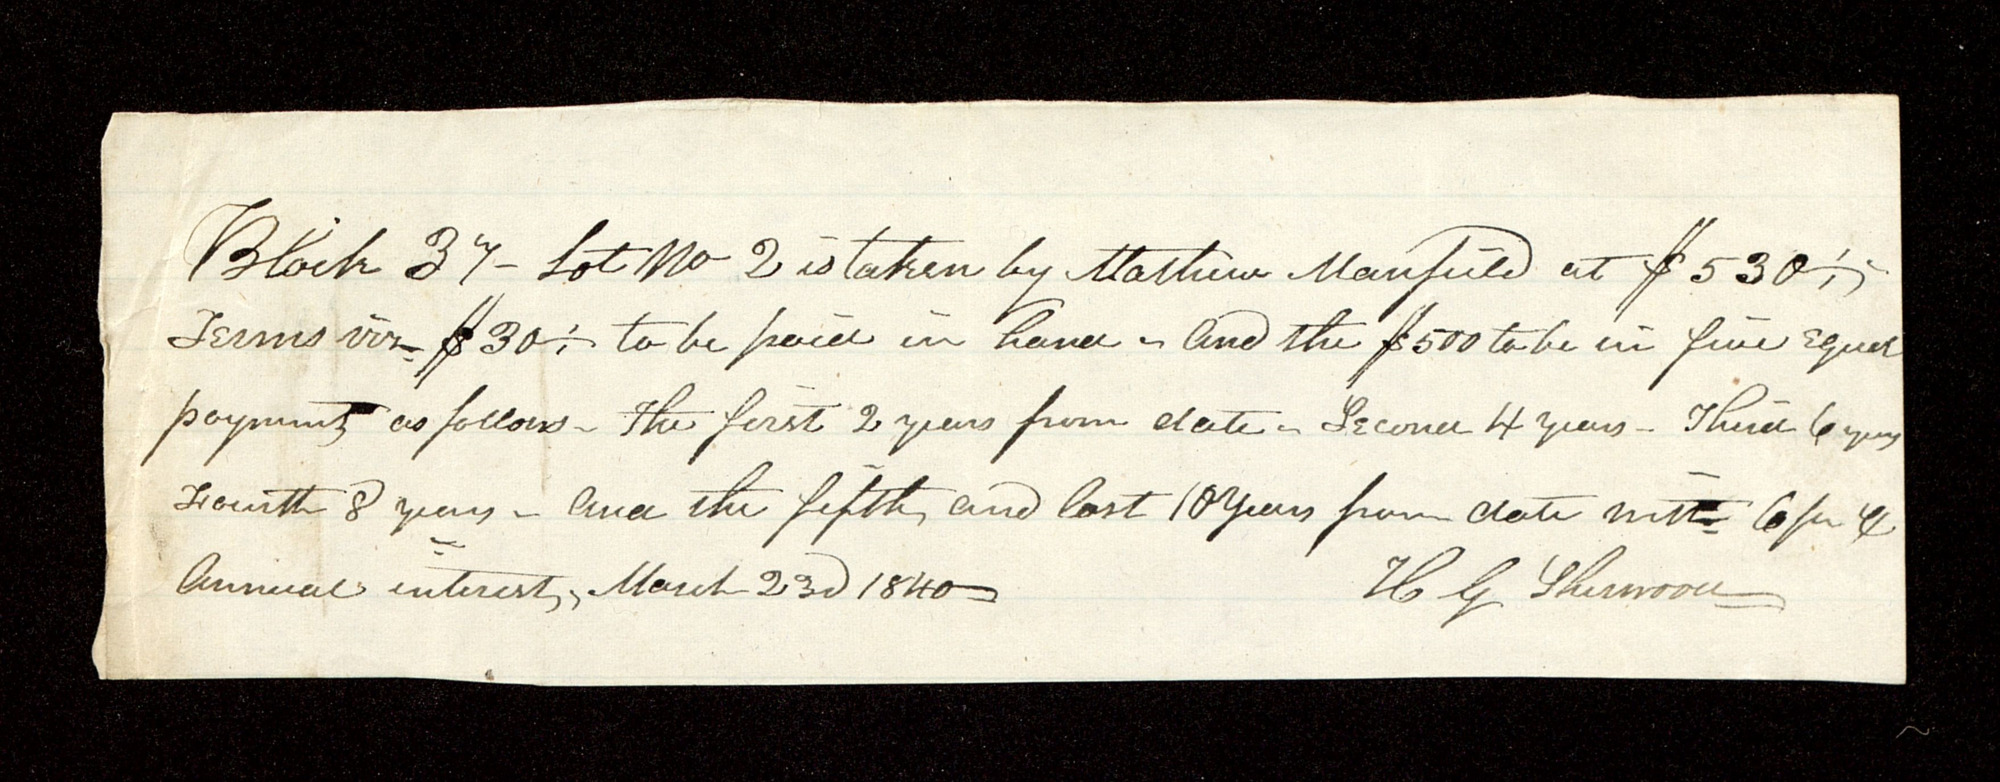 Block 37 – Lot No 2 is taken by Mathew Mansfield at $530;–
Terms viz– $30;– to be paid in hand – and the $500 to be in five Equal
payments as follows – The first 2 years from date – Second 4 years – Third 6 years
Fourth 8 years – and the fifth, and last 10 Years from date with 6 pr ct
Annual interest, March 23d 1840
H G Sherwood